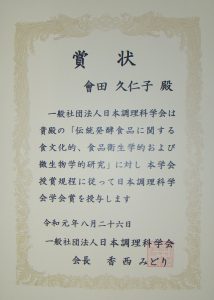 賞状
會田 久仁子 殿
一般社団法人日本調理科学会は
貴殿の「伝統発酵食品に関する
食文化的、食品衛生学的および
微生物学的研究」に対し 本学会
授賞規程に従って日本調理科学
会学会賞を授与します
令和元年八月二十六日
一般社団法人日本調理科学会
会長 香西 みどり